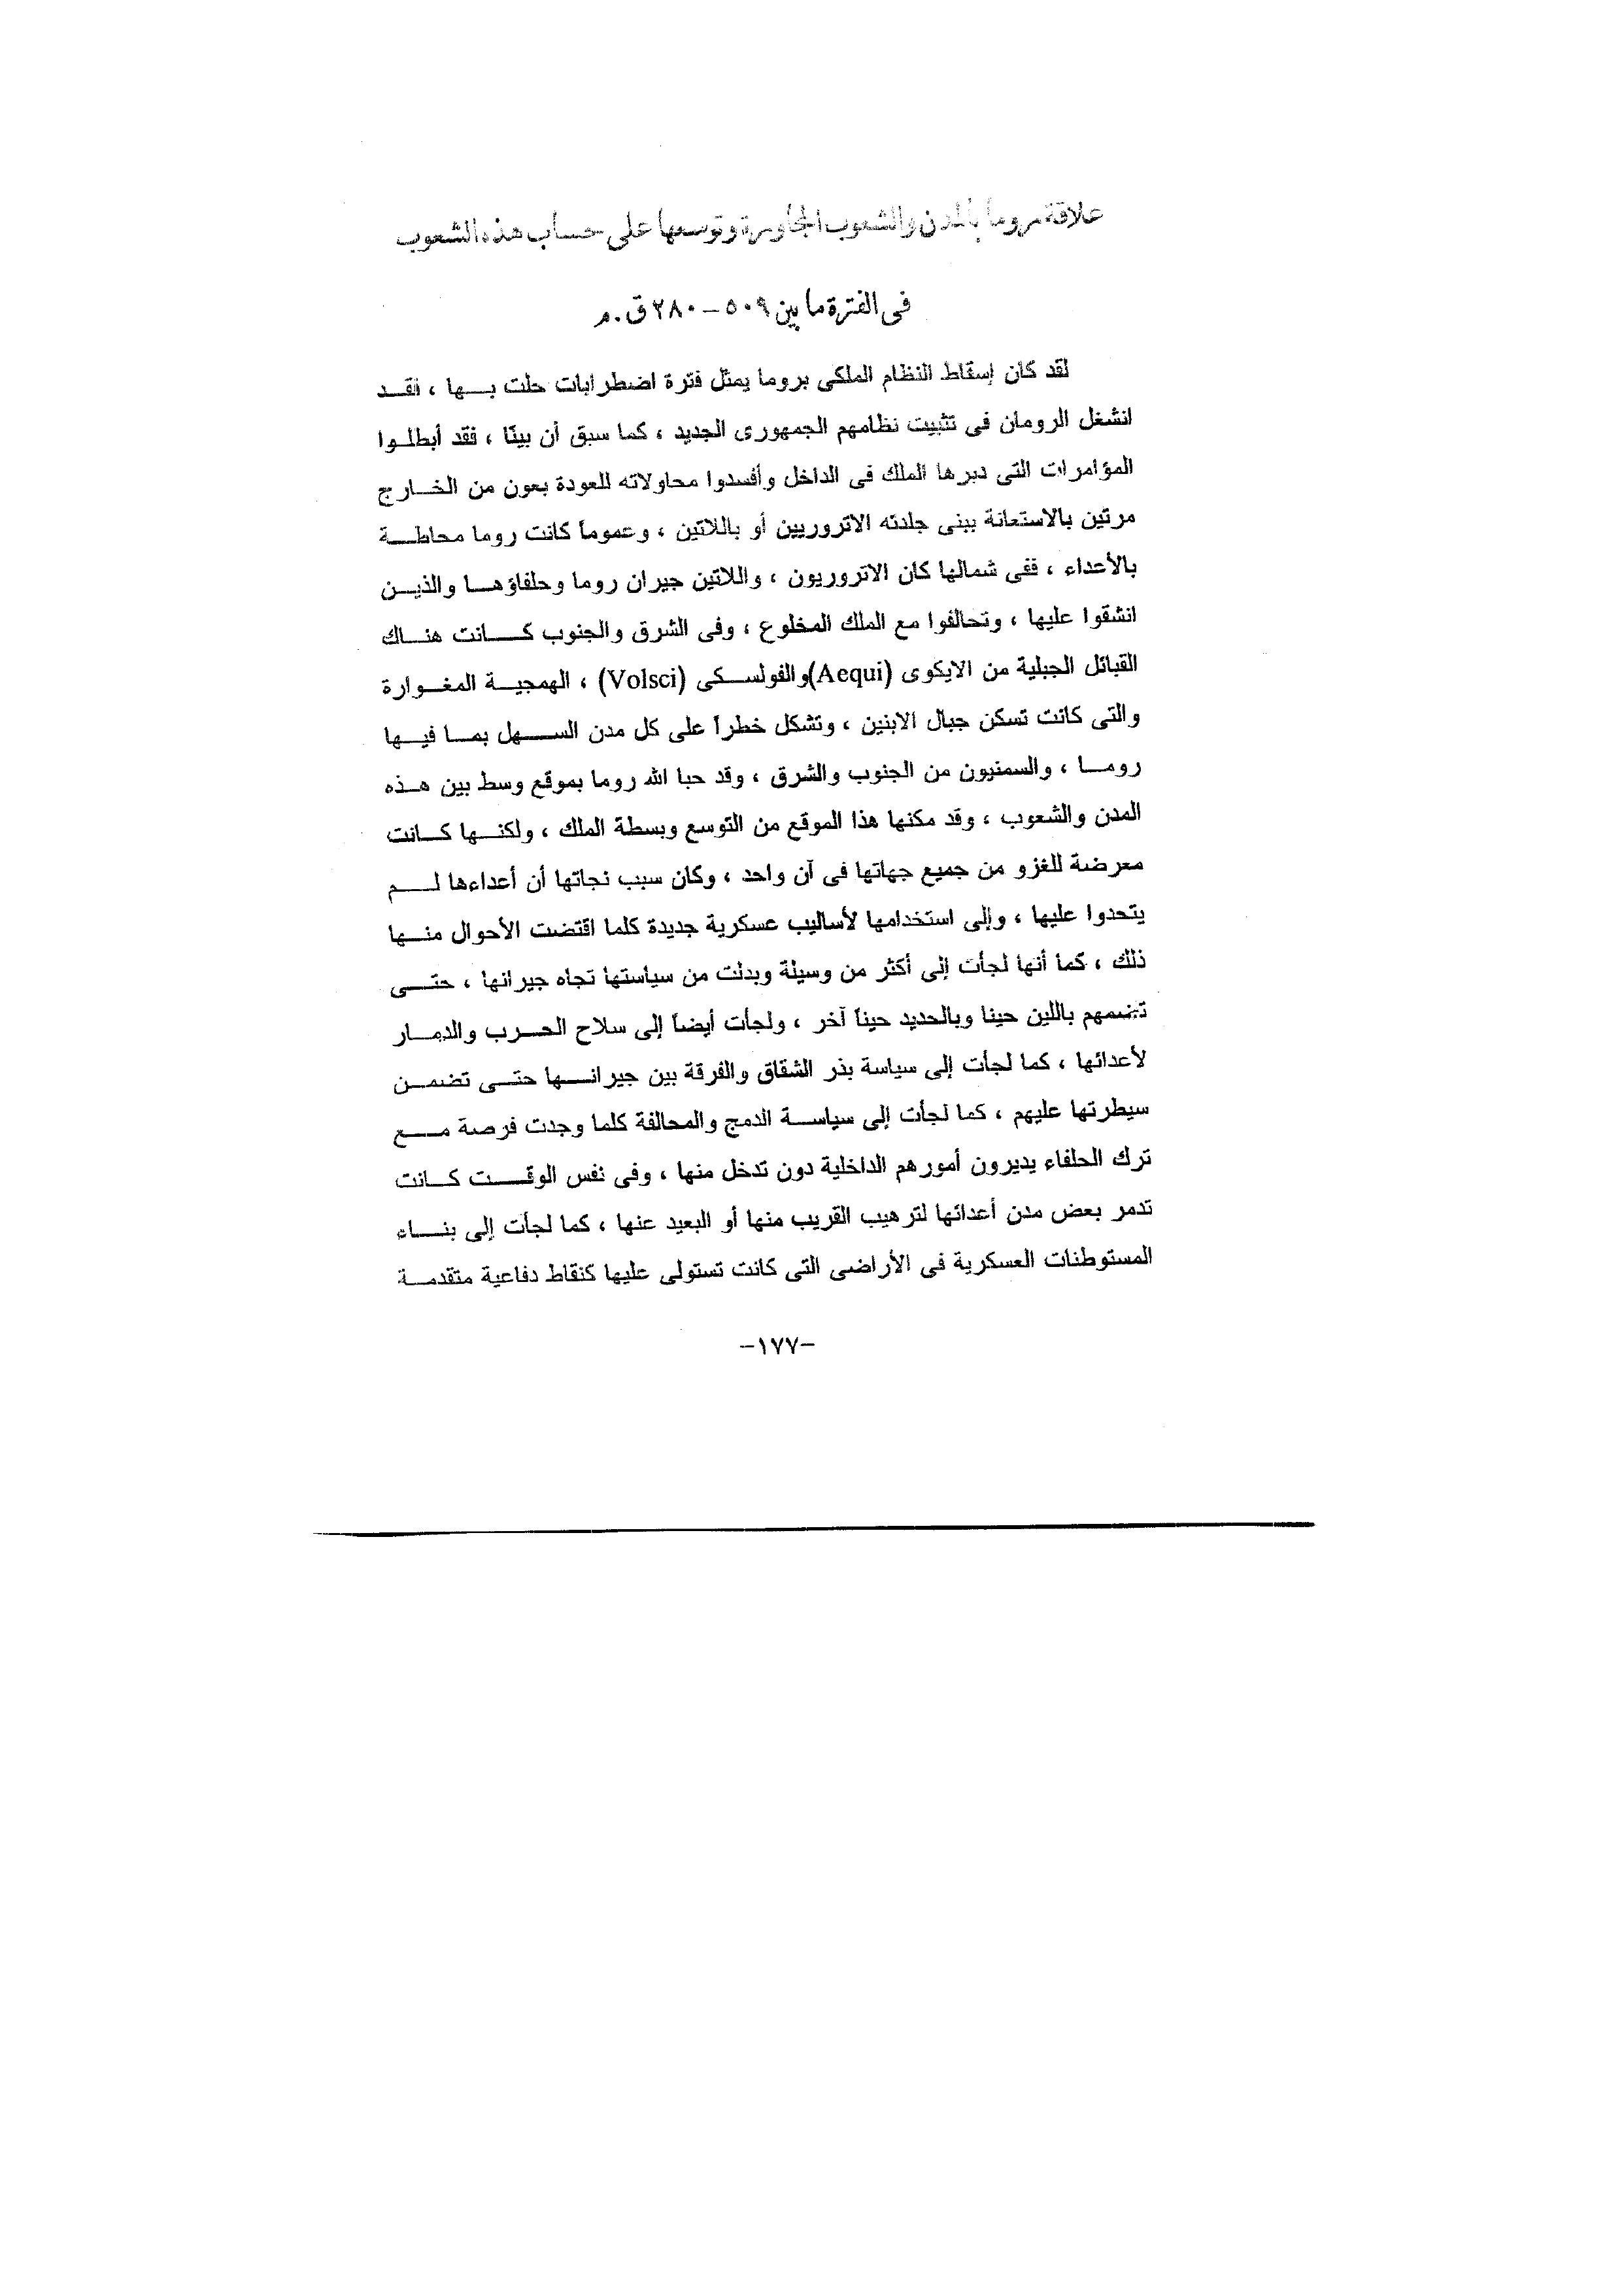 علاقة روما بالمدن والشعوب المجاورة وتوسعها على حساب هذه الشعوب
فى الفترة ما بين ٥٠٩ – ٢٨٠ ق.م
لقد كان إسقاط النظام الملكى بروما يمثل فترة اضطرابات حلت بها ، فقد
انشغل الرومان فى تثبيت نظامهم الجمهورى الجديد ، كما سبق أن بينّا ، فقد أبطلوا
المؤامرات التى دبرها الملك فى الداخل وأفسدوا محاولاته للعودة بعون من الخارج
مرتين بالاستعانة ببنى جلدته الاتروريين أو باللاتين ، وعموماً كانت روما محاطة
بالأعداء ، ففى شمالها كان الاتروريون ، واللاتين جيران روما وحلفاؤها والذين
انشقوا عليها ، وتحالفوا مع الملك المخلوع ، وفى الشرق والجنوب كانت هناك
القبائل الجبلية من الايكوى (Aequi) والفولسكى (Volsci) ، الهمجية المغوارة
والتى كانت تسكن جبال الابنين ، وتشكل خطراً على كل مدن السهل بما فيها
روما ، والسمنيون من الجنوب والشرق ، وقد حبا الله روما بموقع وسط بين هذه
المدن والشعوب ، وقد مكنها هذا الموقع من التوسع وبسطة الملك ، ولكنها كانت
معرضة للغزو من جميع جهاتها فى آن واحد ، وكان سبب نجاتها أن أعداءها لم
يتحدوا عليها ، وإلى استخدامها لأساليب عسكرية جديدة كلما اقتضت الأحوال منها
ذلك ، كما أنها لجأت إلى أكثر من وسيلة وبدلت من سياستها تجاه جيرانها ، حتى
تضمهم باللين حينا وبالحديد حيناً آخر ، ولجأت أيضاً إلى سلاح الحرب والدمار
لأعدائها ، كما لجأت إلى سياسة بذر الشقاق والفرقة بين جيرانها حتى تضمن
سيطرتها عليهم ، كما لجأت إلى سياسة الدمج والمحالفة كلما وجدت فرصة مع
ترك الحلفاء يديرون أمورهم الداخلية دون تدخل منها ، وفى نفس الوقت كانت
تدمر بعض مدن أعدائها لترهيب القريب منها أو البعيد عنها ، كما لجأت إلى بناء
المستوطنات العسكرية فى الأراضى التى كانت تستولى عليها كنقاط دفاعية متقدمة
-١٧٧-